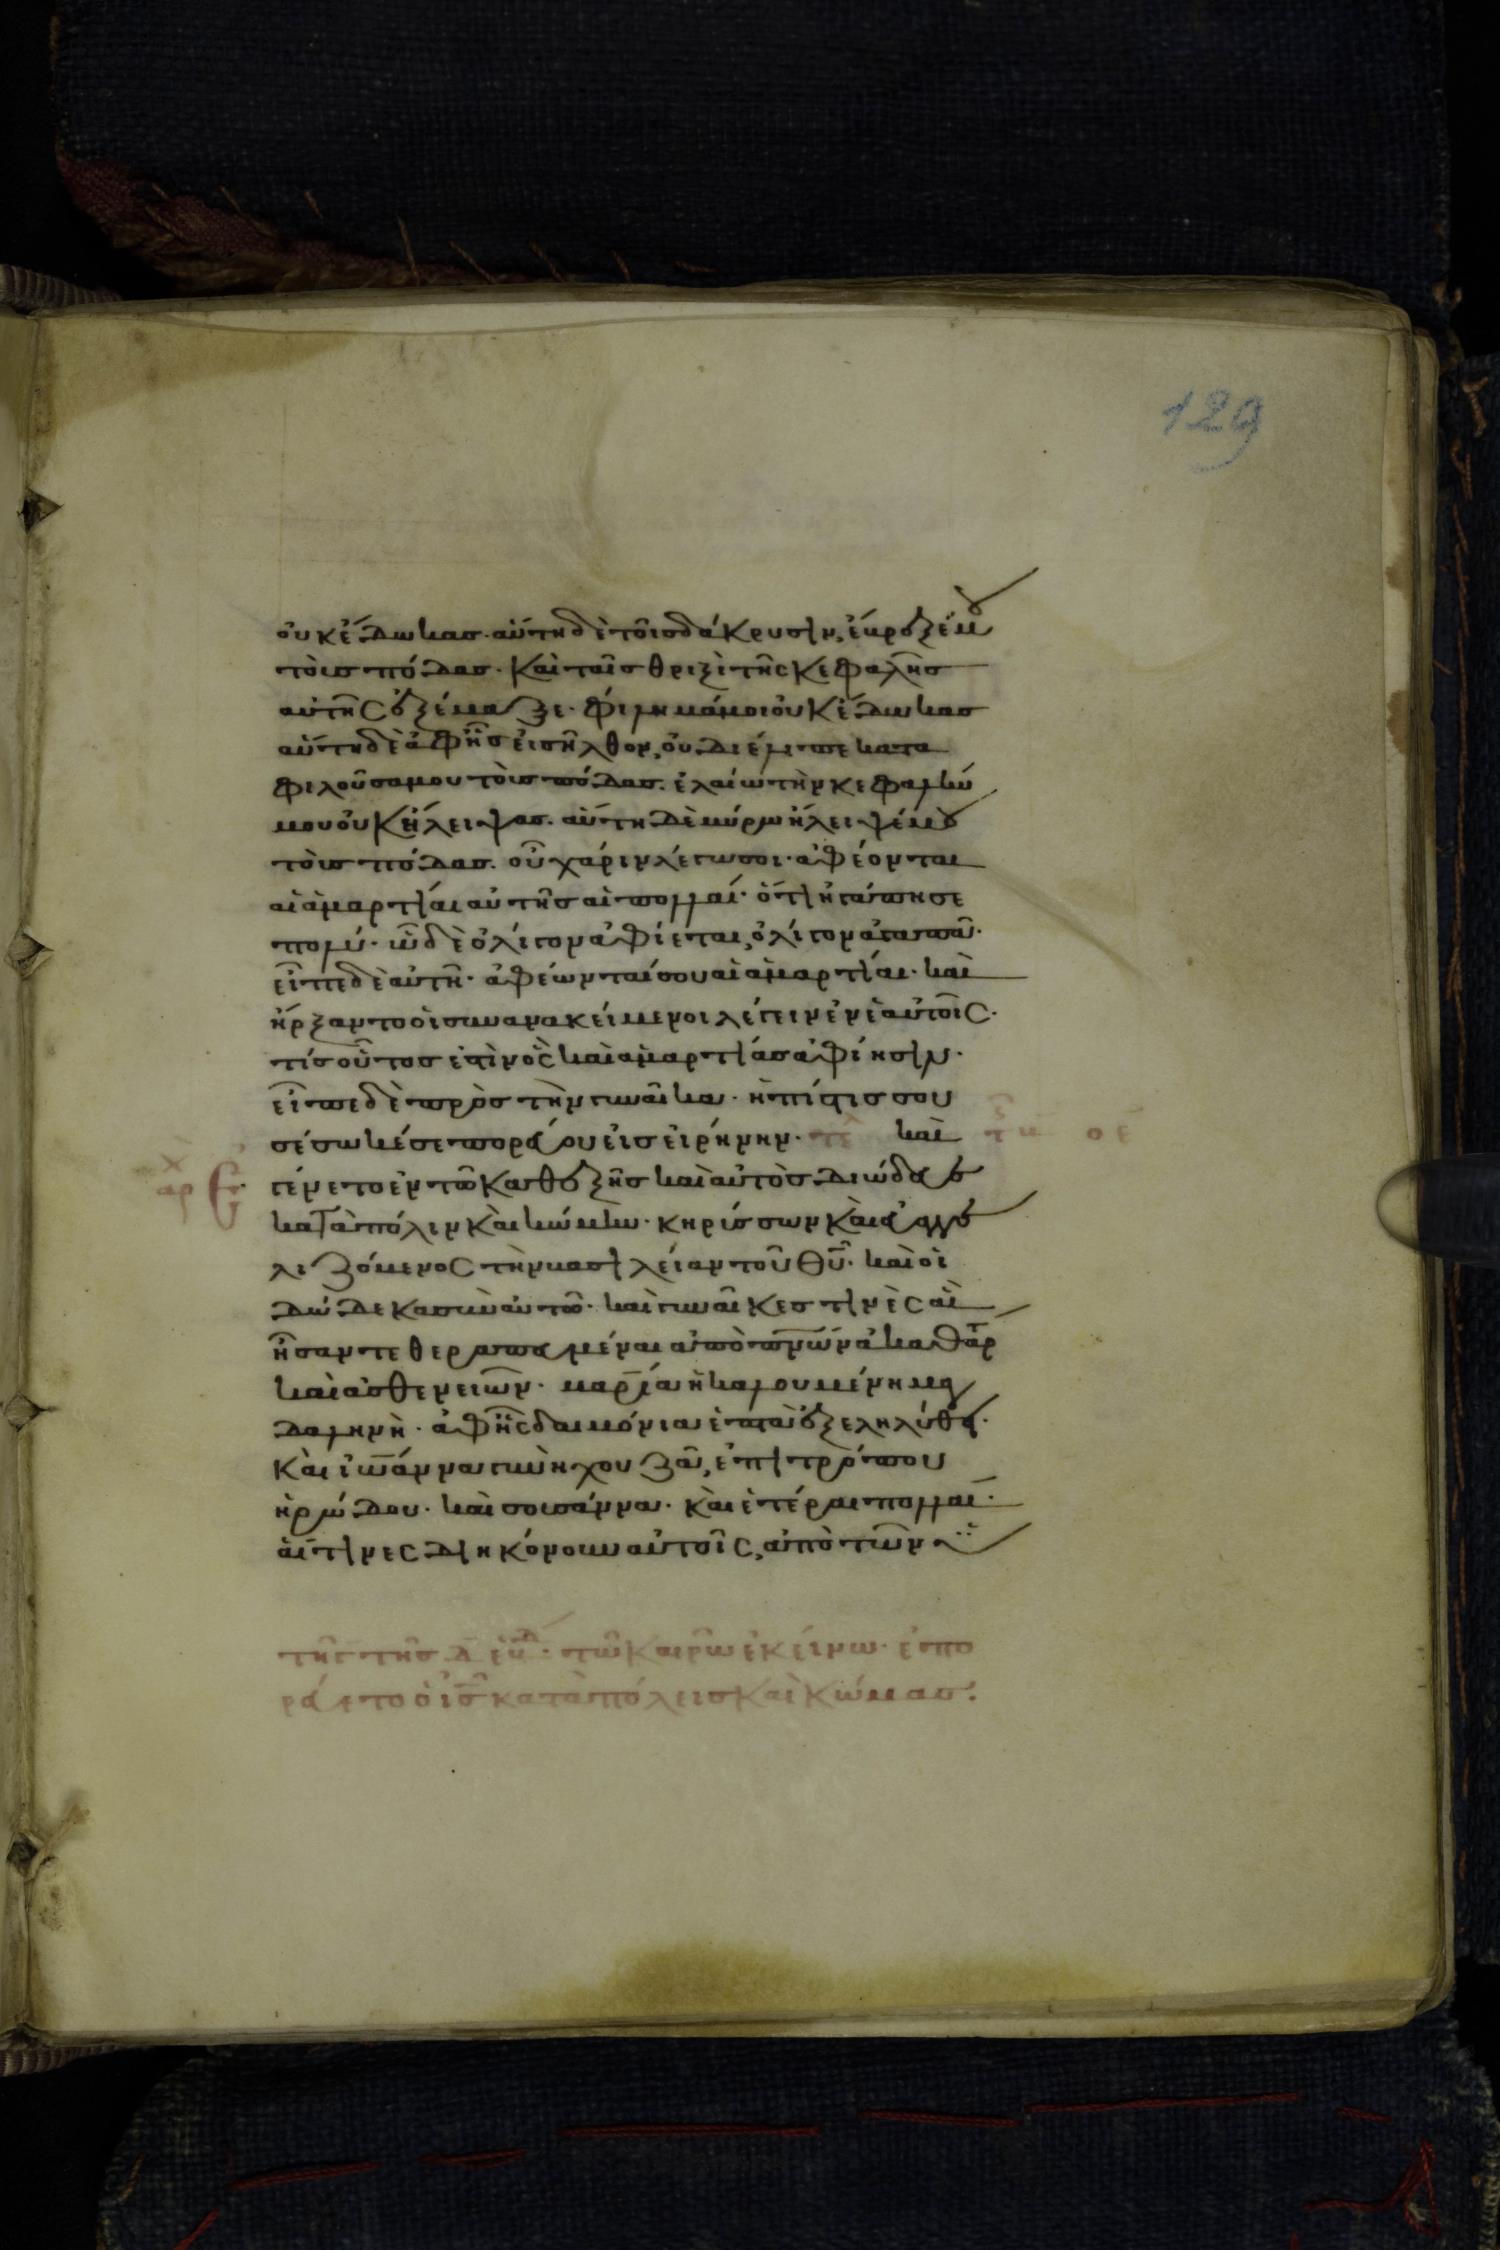 129
οὐκ ἔδωκας· αὕτη δὲ τοῖς δάκρυσιν, ἔβρεξέ μου
τοὺς πόδας· καὶ ταῖς θριξὶ τῆς κεφαλῆς
αὐτῆς ἐξέμαξε· φίλημά μοι οὐκ ἔδωκας
αὕτη δὲ ἀφ' ἧς εἰσῆλθον, οὐ διέλιπε κατα
φιλοῦσα μου τοὺς πόδας. ἐλαίω τὴν κεφαλήν
μου οὐκ ἤλειψας. αὕτη δὲ μύρω ἤλειψέ μου
τοὺς πόδας. οὗ χάριν λέγω σοι· ἀφέονται
αἱ ἁμαρτίαι αὐτῆς αἱ πολλαί· ὅτι ἠγάπησε
πολύ· ὧ δὲ ὀλίγον ἀφίεται, ὀλίγον ἀγαπᾶ·
εἶπε δὲ αὐτῆ· ἀφέωνταί σου αἱ ἁμαρτίαι· καὶ
ἤρξαντο οἱ συνανακείμενοι λέγειν ἐν ἑαυτοῖς·
τίς οὗτος ἐστὶν ὃς καὶ ἁμαρτίας ἀφίησιν·
εἶπε δὲ πρὸς τὴν γυναῖκα· ἡ πίστις σου
σέσωκέ σε πορεύου εἰς εἰρήνην· τε καὶ
Ἐγένετο ἐν τῶ καθεξῆς καὶ αὐτὸς διώδευε
κατὰ πόλιν καὶ κώμην· κηρύσσων καὶ εὐαγγε
λιζόμενος τὴν βασιλείαν τοῦ θυ· καὶ οἱ
δώδεκα σὺν αὐτῶ· καὶ γυναῖκες τινὲς αἳ
ἦσαν τεθεραπευμέναι ἀπὸ πνων ἀκαθάρ
καὶ ἀσθενειῶν· μαρία ἡ καλουμένη μα
γδαληνὴ· ἀφ' ἧς δαιμόνια ἑπτὰ ἐξεληλύθει·
καὶ ἰωάννα γυνὴ χουζᾶ, ἐπιτρόπου
ἡρώδου· καὶ σουσάννα· καὶ ἑτέραι πολλαί·
αἵτινες διηκόνουν αὐτοῖς, ἀπὸ τῶν
τῶ καιρῶ ἐκείνω· ἐπο
ρεύετο ὁ ις κατὰ πόλεις καὶ κώμας: